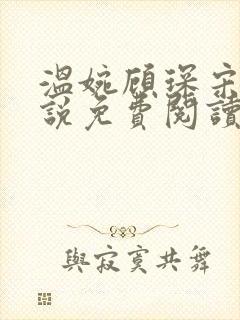 溫婉顧琛宋
說免費閱讀
與寂寞共舞